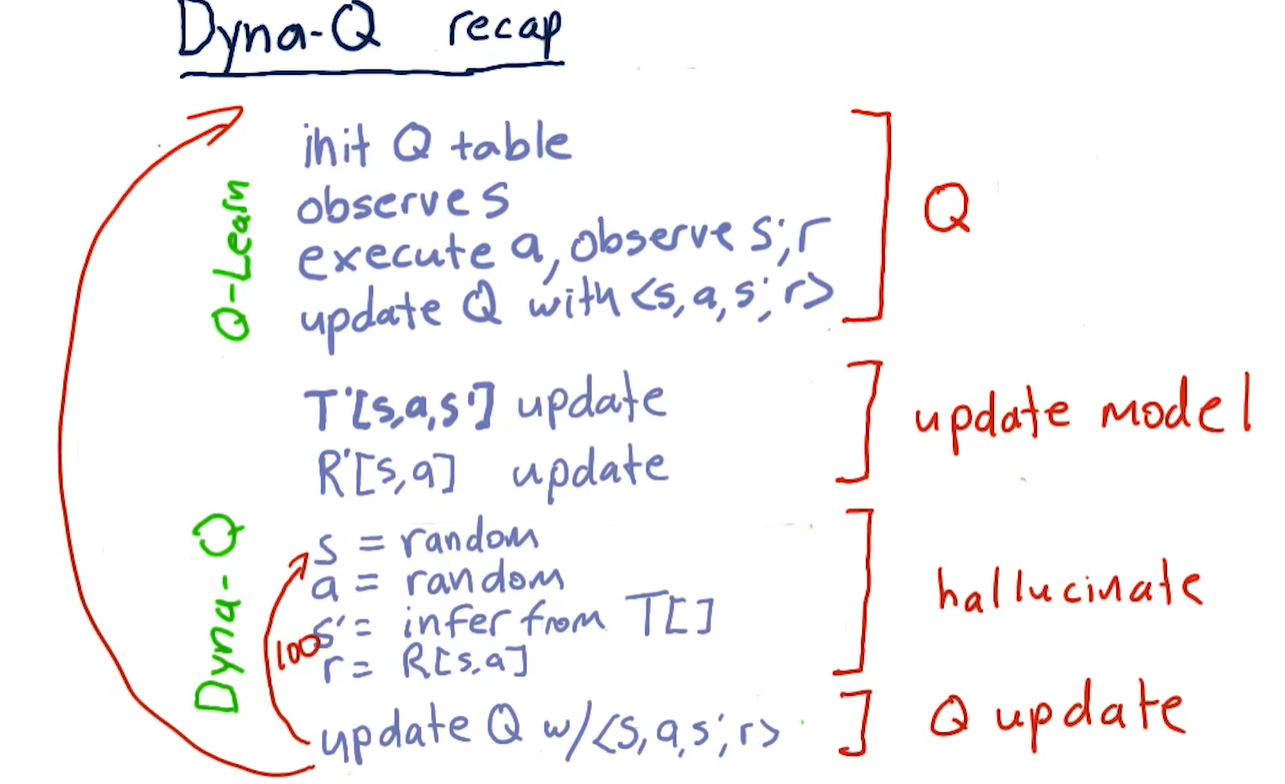 Dyna-Q recap
init Q table
observe s
execute a, observe s', r
update Q with <s, a, s', r>
Q-Learn
Q
T'[s,a,s'] update
R'[s,a] update
update model
Dyna-Q
s = random
a = random
s' = infer from T[]
r = R[s,a]
100
hallucinate
update Q w/<s, a, s', r>
Q update